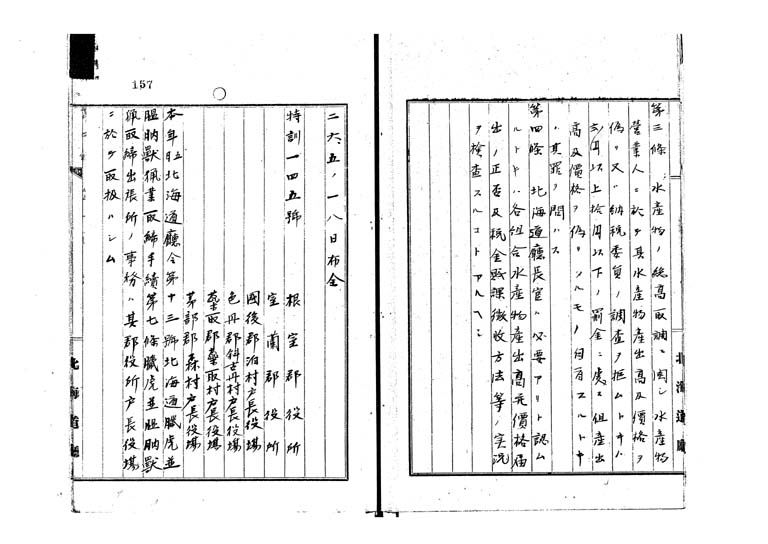 第三條 水産物ノ総高取調ニ関シ水産物
営業人ニ於テ其水産物産出高及價格ヲ
偽リ又ハ納税委員ノ調査ヲ拒ムトキハ
以上拾円以下ノ罰金ニ處ス但産出
高及價格ヲ偽リタルモノ自首スルトキ
ハ其罪ヲ問ハス
第四條 北海道廳長官ハ必要アリト認ム
ルトキハ各組合水産物産出高元價格届
出ノ正否及税金賦課徴收方法等ノ実況
ヲ検査スルコトアルヘシ
北海道廳
157
二六、五、一八日布令
特訓一四五號
根室郡役所
室蘭郡役所
國後郡泊村戸長役場
色丹郡斜古丹村戸長役場
蘂取郡蘂取村戸長役場
茅部郡森村戸長役場
本年北海道廳令第十三號北海道臘虎並
膃肭獣猟業取締手續第七條臘虎並膃肭獣
猟取締出張所ノ事務ハ其郡役所戸長役場
ニ於テ取扱ハシム
北海道廳